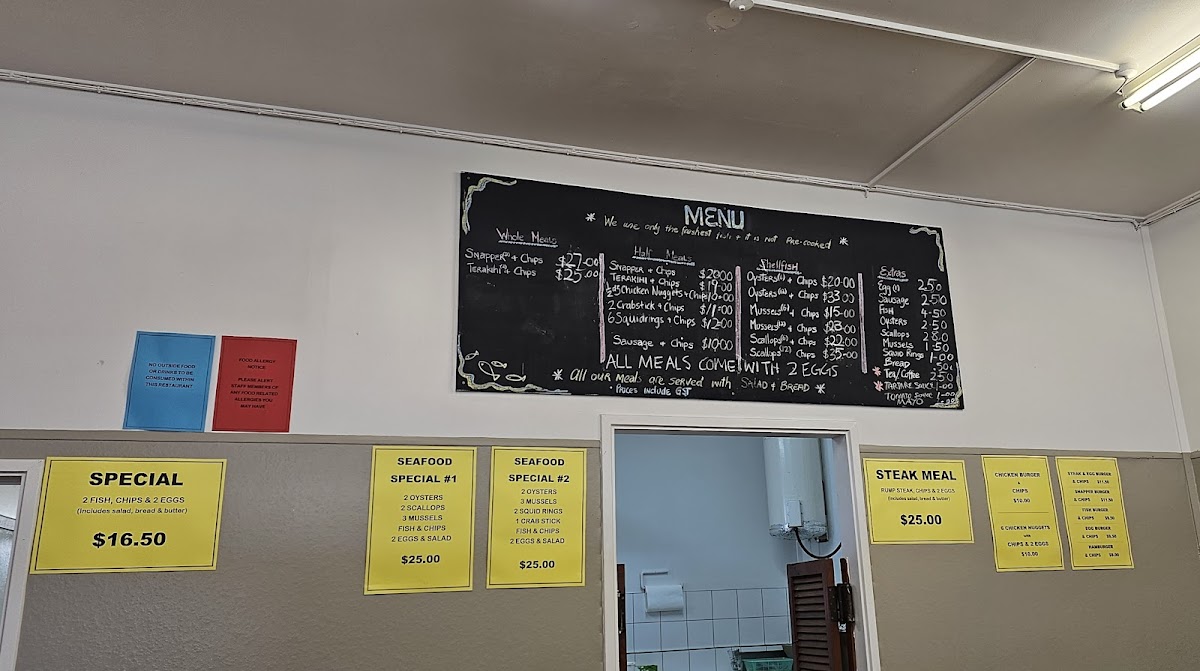 MENU
* We use only the freshest fish + it is not Pre-cooked *
Whole Meals
Snapper(2) + Chips $27.00
Terakihi + Chips $25.00
Half Meals
Snapper + Chips $20.00
TERAKIHI + Chips $19.00
Chicken Nuggets + Chips
2 Crabstick + Chips $11.00
6 Squidrings + Chips $12.00
Sausage + Chips $10.00
Shellfish
OYSTERS + Chips $20.00
OYSTERS + Chips $33.00
Mussels + Chips $15.00
Mussels + Chips $23.00
Scallops + Chips $22.00
Scallops(12) + Chips $35.00
Extras
Egg (1) 2.50
Sausage 2.50
Fish 4.50
Oysters 2.50
Scallops 2.80
Mussels 1.50
Squid Rings 1.00
Bread .50c
* Tea/Coffee 2.50
* TARTARE SAUCE 1.00
TOMATO SAUCE
MAYO
ALL MEALS COME WITH 2 EGGS
* All our Meals are served with SALAD + BREAD *
Prices include GST
NO OUTSIDE FOOD
OR DRINKS TO BE
CONSUMED WITHIN
THIS RESTAURANT
FOOD ALLERGY
NOTICE
PLEASE ALERT
STAFF MEMBERS OF
ANY FOOD RELATED
ALLERGIES YOU
MAY HAVE
SPECIAL
2 FISH, CHIPS & 2 EGGS
(Includes salad, bread & butter)
$16.50
SEAFOOD
SPECIAL #1
2 OYSTERS
2 SCALLOPS
3 MUSSELS
FISH & CHIPS
2 EGGS & SALAD
$25.00
SEAFOOD
SPECIAL #2
2 OYSTERS
3 MUSSELS
2 SQUID RINGS
1 CRAB STICK
FISH & CHIPS
2 EGGS & SALAD
$25.00
STEAK MEAL
RUMP STEAK, CHIPS & 2 EGGS
(Includes salad, bread & butter)
$25.00
CHICKEN BURGER
&
CHIPS
$10.00
6 CHICKEN NUGGETS
with
CHIPS & 2 EGGS
$10.00
STEAK & EGG BURGER
& CHIPS $11.50
SNAPPER BURGER
& CHIPS $11.50
FISH BURGER
& CHIPS $9.50
EGG BURGER
& CHIPS $8.50
HAMBURGER
& CHIPS $9.00